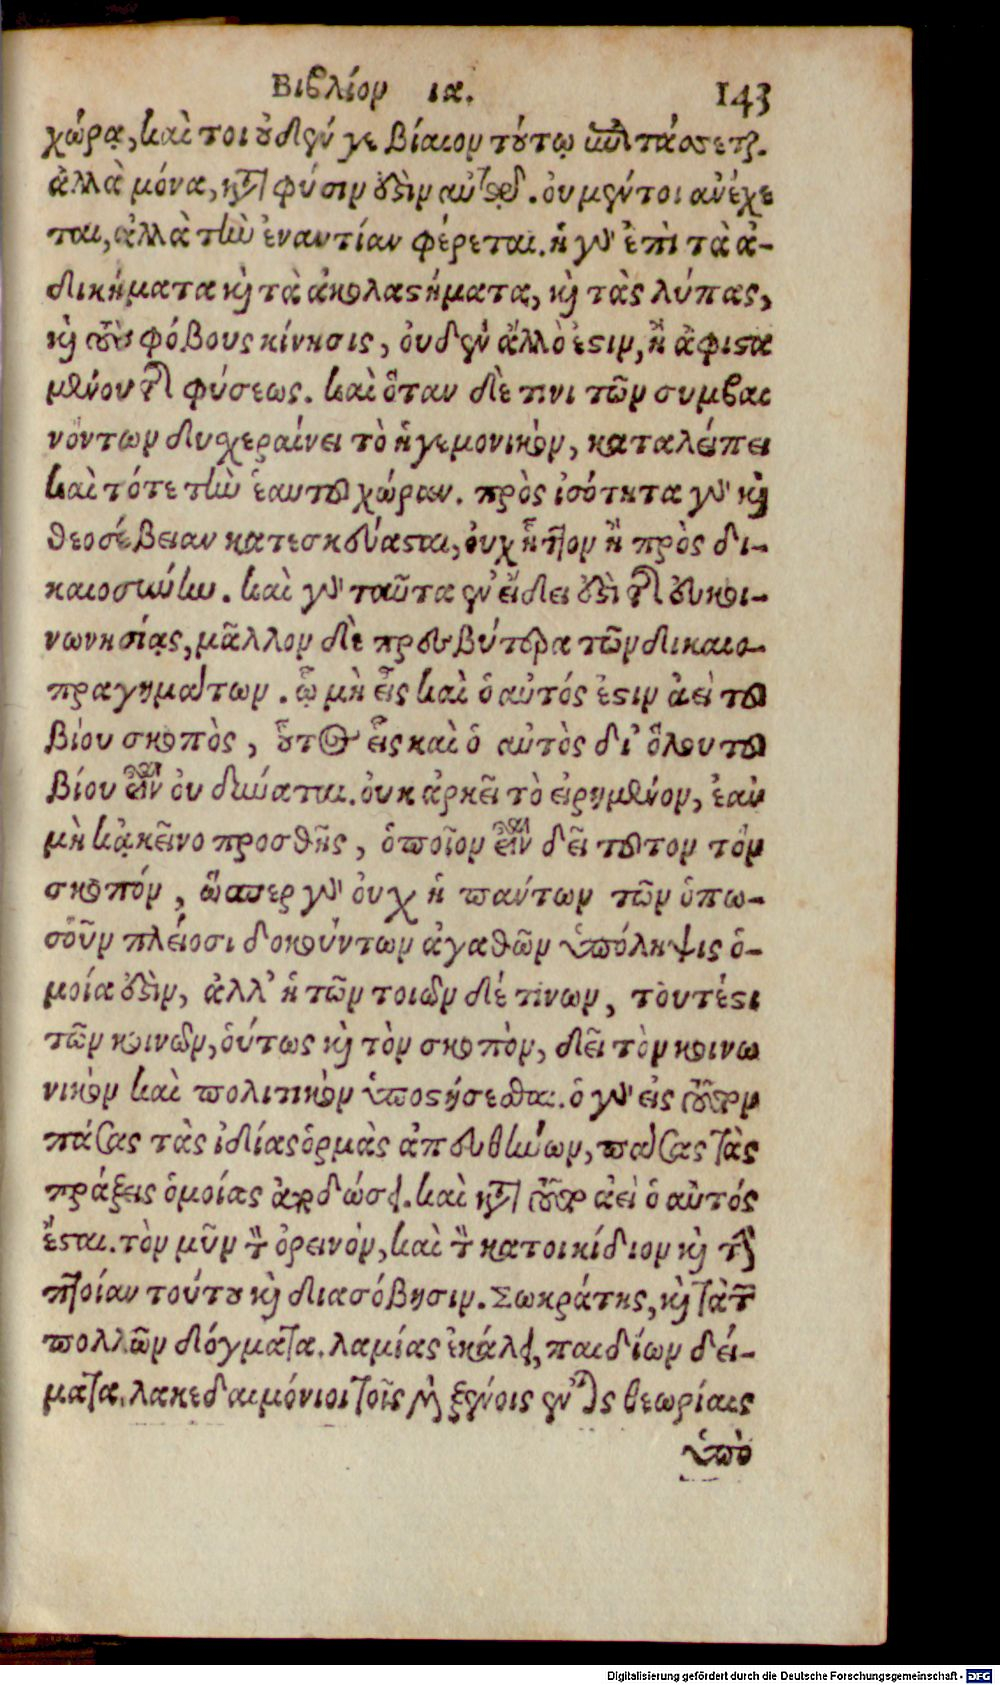 Βιβλίον ια. 143
χώρᾳ, καὶ τοι οὐδέν γε βίαιον τούτῳ προστάσσεται.
ἀλλὰ μόνα, κατὰ φύσιν ἐστὶν αὐτοῦ. οὐ μέντοι ἀνέχε
ται, ἀλλὰ τὴν ἐναντίαν φέρεται. ἡ γὰρ ἐπὶ τὰ ἀ-
δικήματα καὶ τὰ ἀκολαστήματα, καὶ τὰς λύπας,
καὶ τοὺς φόβους κίνησις, οὐδὲν ἄλλο ἐστὶν, ἢ ἀφιστα
μένου τῆς φύσεως. καὶ ὅταν δὲ τινι τῶν συμβαι
νόντων δυσχεραίνει τὸ ἡγεμονικὸν, καταλείπει
καὶ τότε τὴν ἑαυτοῦ χώραν. πρὸς ἰσότητα γὰρ καὶ
θεοσέβειαν κατεσκεύασται, οὐχ ἧττον ἢ πρὸς δι-
καιοσύνην. καὶ γὰρ ταῦτα ἐν εἴδει ἐστὶ τῆς εὐκοι-
νωνησίας, μᾶλλον δὲ πρεσβύτερα τῶν δικαιο-
πραγημάτων. ᾧ μὴ εἷς καὶ ὁ αὐτός ἐστιν ἀεὶ τοῦ
βίου σκοπὸς, οὗτος εἷς καὶ ὁ αὐτὸς δι’ ὅλου τοῦ
βίου εἶναι οὐ δύναται. οὐκ ἀρκεῖ τὸ εἰρημένον, ἐὰν
μὴ κᾀκεῖνο προσθῇς, ὁποῖον εἶναι δεῖ τοῦτον τὸν
σκοπόν, ὥσπερ γὰρ οὐχ ἡ πάντων τῶν ὁπω-
σοῦν πλείοσι δοκούντων ἀγαθῶν ὑπόληψις ὁ-
μοία ἐστὶν, ἀλλ’ ἡ τῶν τοιῶν δέ τινων, τουτέστι
τῶν κοινῶν, οὕτως καὶ τὸν σκοπὸν, δεῖ τὸν κοινω
νικὸν καὶ πολιτικὸν ὑποστήσεσθαι. ὁ γὰρ εἰς τοῦτον
πάσας τὰς ἰδίας ὁρμὰς ἀπευθύνων, πάσας τὰς
πράξεις ὁμοίας ἀποδώσει. καὶ κατὰ τοῦτο ἀεὶ ὁ αὐτός
ἔσται. τὸν μῦν τὸν ὀρεινὸν, καὶ τὸν κατοικίδιον καὶ τὴν
πτοίαν τούτου καὶ διασόβησιν. Σωκράτης, καὶ τὰ τῶν
πολλῶν δόγματα. λαμίας ἐκάλει, παιδίων δεί-
ματα. λακεδαιμόνιοι τοῖς μὲν ξένοις ἐν ταῖς θεωρίαις
ὑπὸ
Digitalisierung gefördert durch die Deutsche Forschungsgemeinschaft - DFG